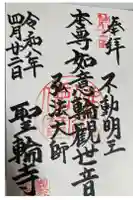 奉拝
不動明王
本尊如意輪観世音
弘法大師
聖輪寺
令和元年
四月廿二日